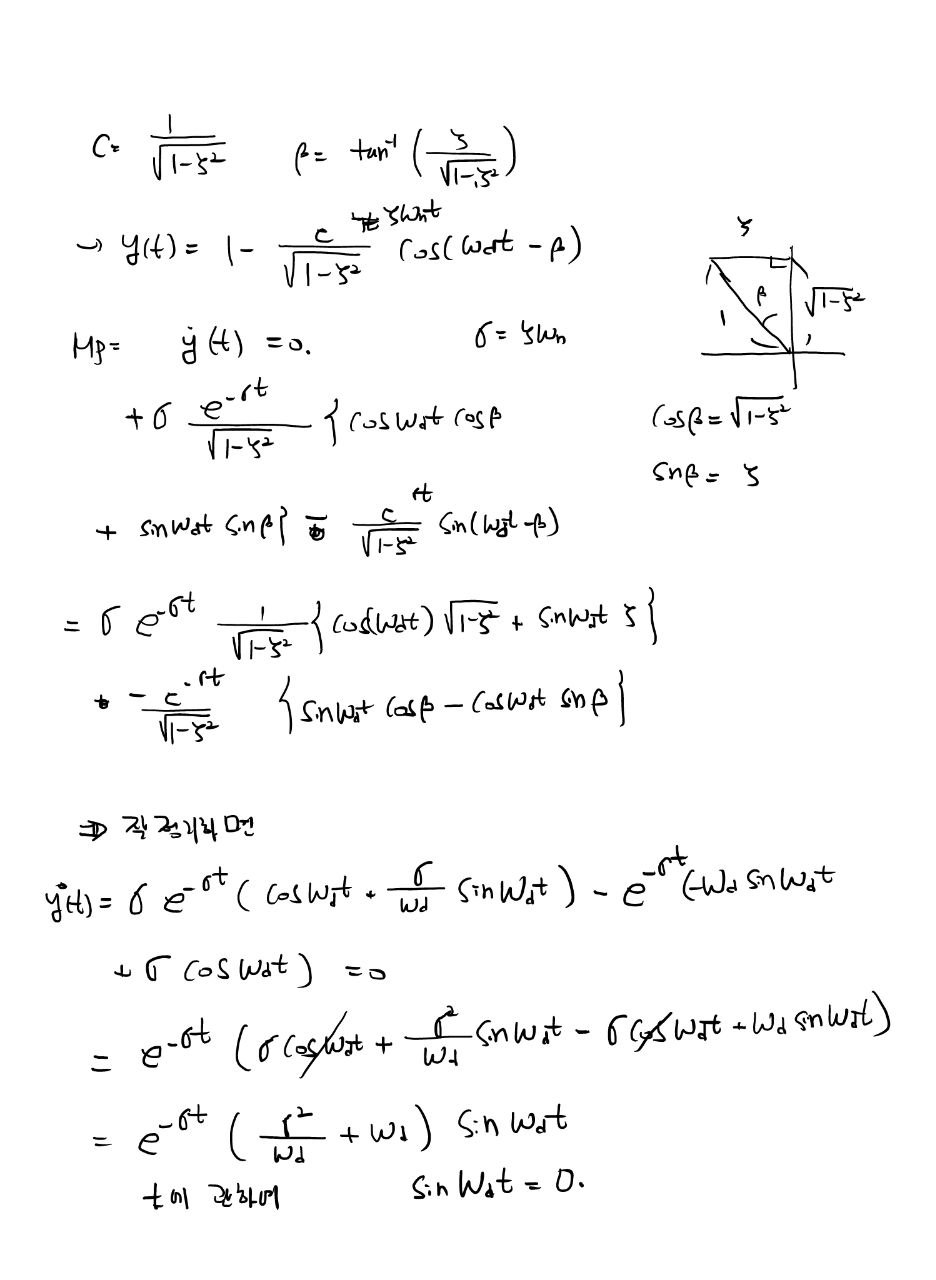 C = 1/√(1-ζ²)   β = tan⁻¹(ζ/√(1-ζ²))
→ y(t) = 1 - e^(ζωnt)/√(1-ζ²) cos(ωdt - β)
ζ
β
1
√(1-ζ²)
Mp =   ẏ(t) = 0.   σ = ζωn
+σ e^(-σt)/√(1-ζ²) { cosωdt cosβ
cosβ = √(1-ζ²)
sinβ = ζ
+ sinωdt sinβ} - e^(σt)/√(1-ζ²) sin(ωdt-β)
= σ e^(-σt) 1/√(1-ζ²) { cos(ωdt) √(1-ζ²) + sinωdt ζ }
+ -e^(-σt)/√(1-ζ²) { sinωdt cosβ - cosωdt sinβ }
⇒ 잘 정리하면
ẏ(t) = σ e^(-σt) ( cosωdt + σ/ωd sinωdt ) - e^(-σt) (-ωd sinωdt
+ σ cosωdt ) = 0
= e^(-σt) ( σ cosωdt + σ²/ωd sinωdt - σ cosωdt + ωd sinωdt )
= e^(-σt) ( σ²/ωd + ωd ) sinωdt
t에 관하여   sinωdt = 0.